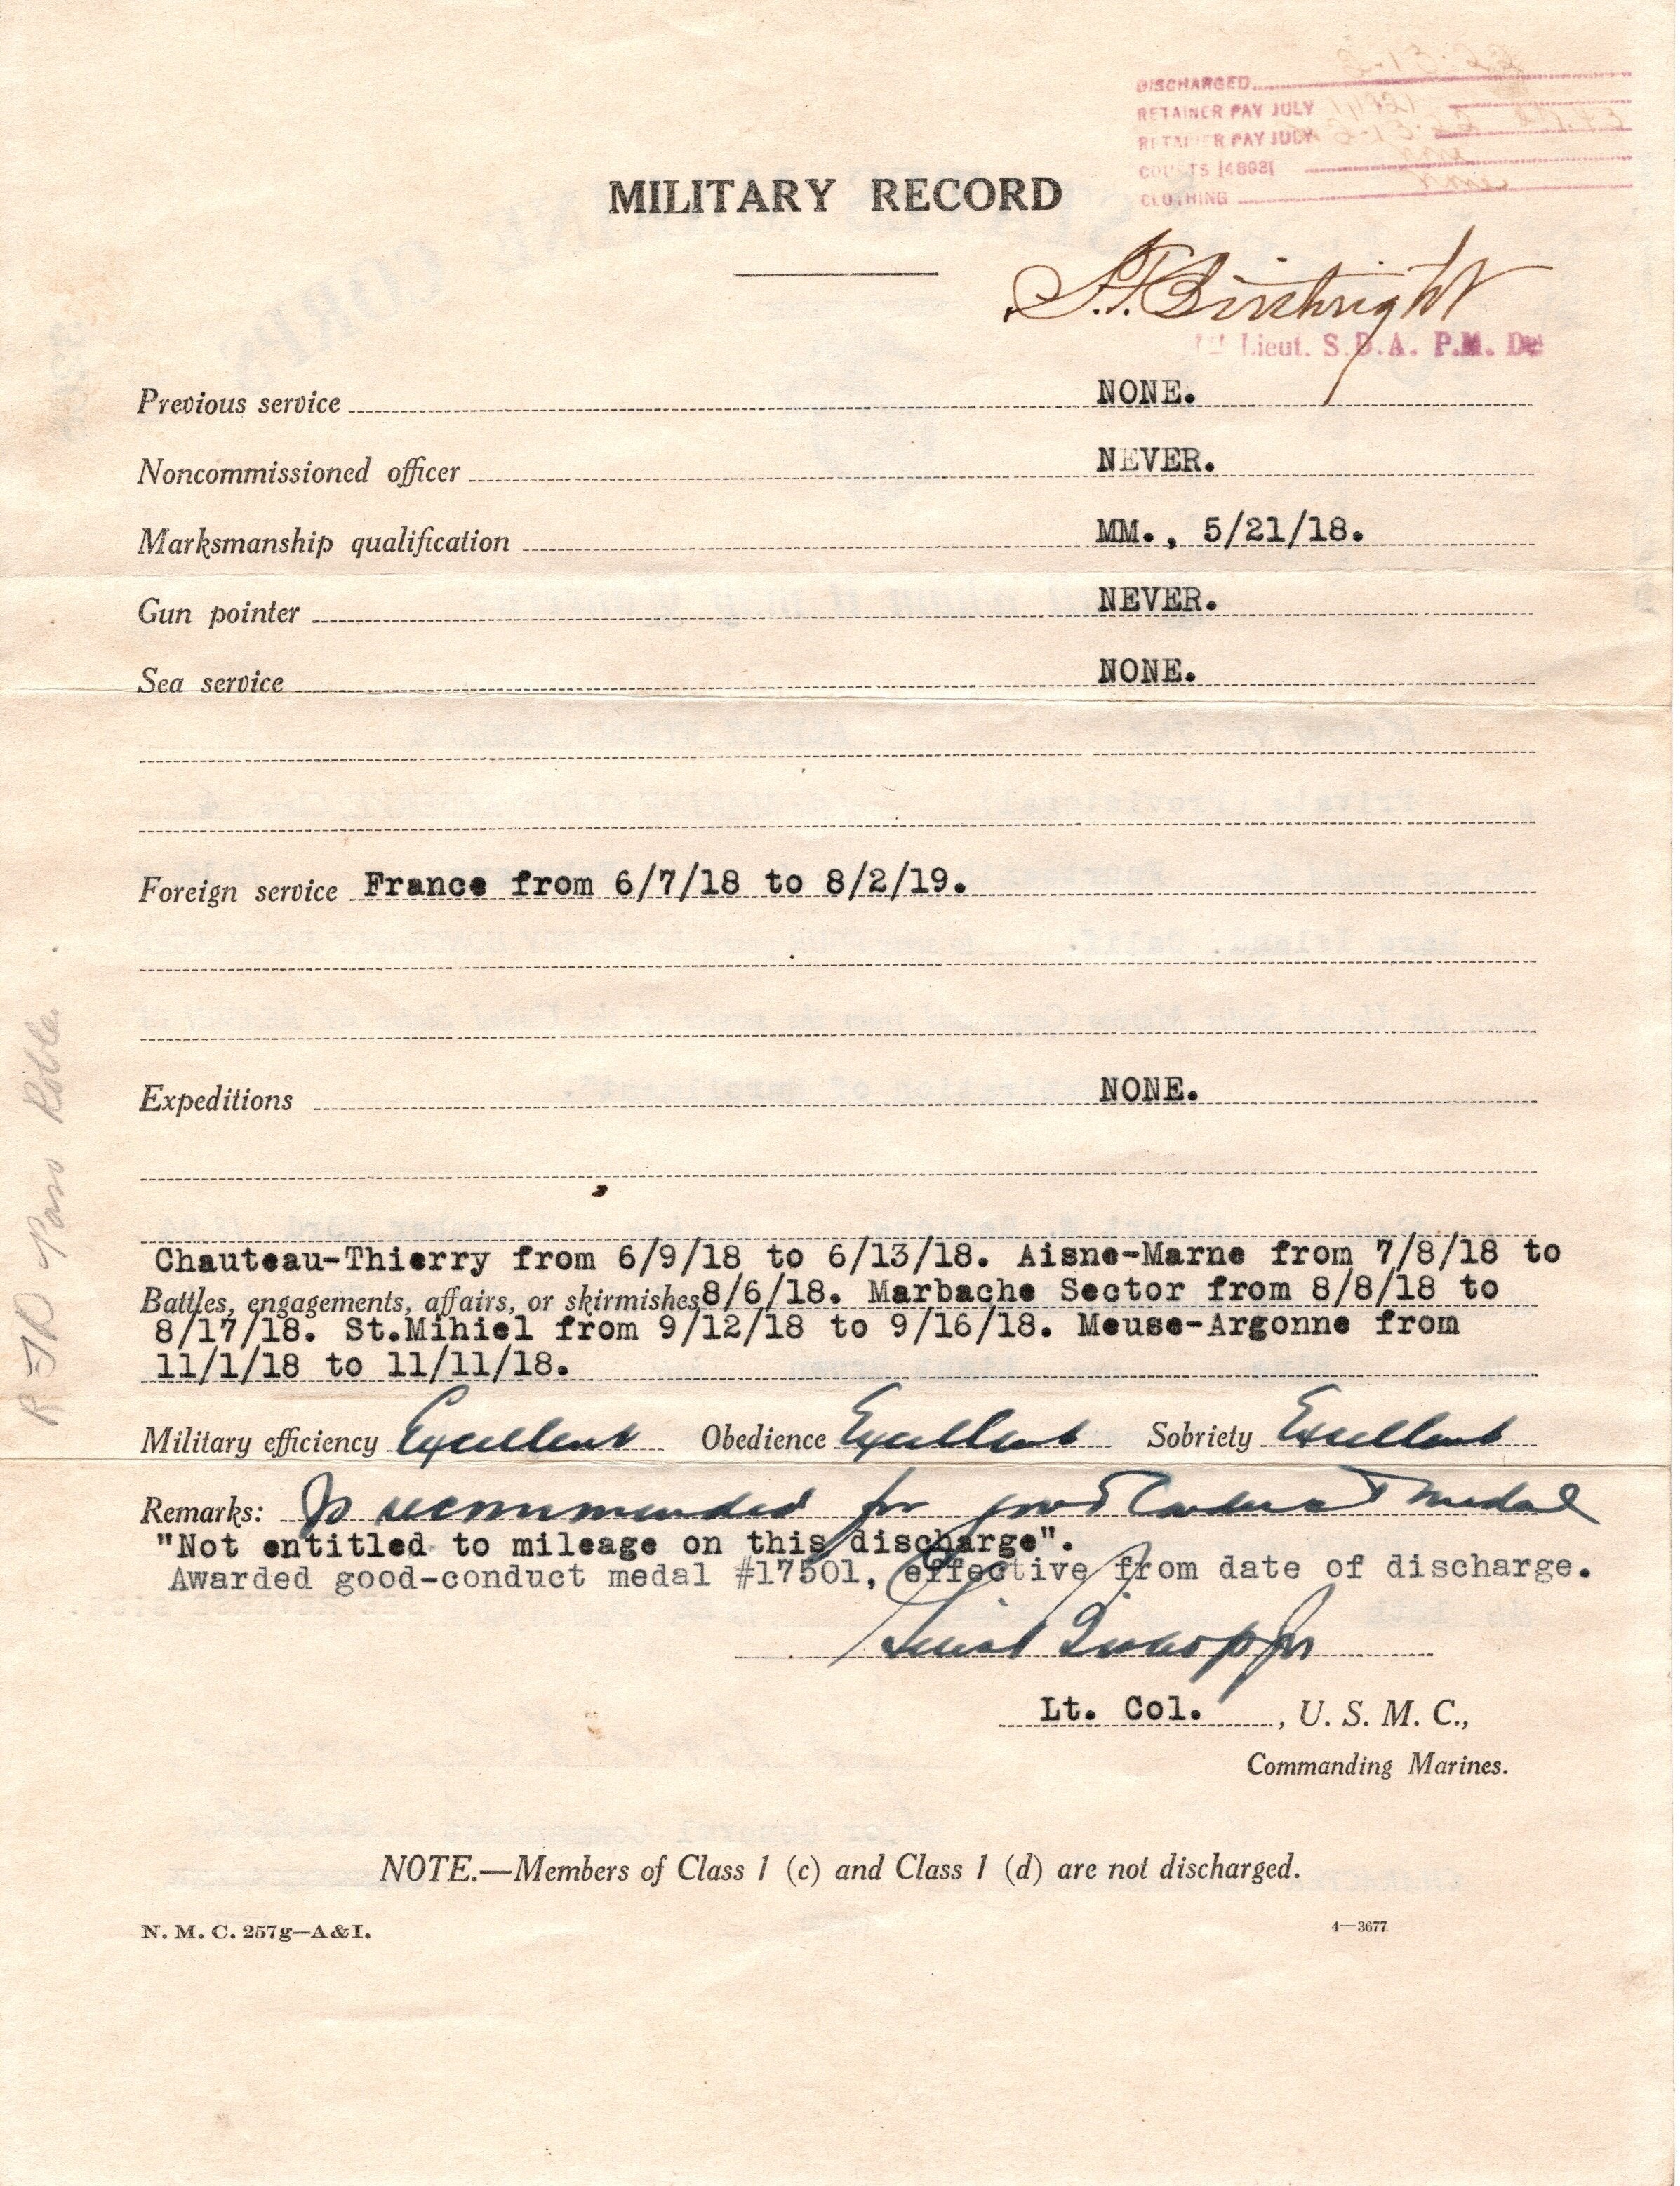 DISCHARGED
RETAINER PAY JULY
RETAINER PAY JULY
COURTS [4893]
CLOTHING
MILITARY RECORD
1st Lieut. S.D.A. P.M. De
Previous service NONE.
Noncommissioned officer NEVER.
Marksmanship qualification MM., 5/21/18.
Gun pointer NEVER.
Sea service NONE.
Foreign service France from 6/7/18 to 8/2/19.
Expeditions NONE.
Chauteau-Thierry from 6/9/18 to 6/13/18. Aisne-Marne from 7/8/18 to
Battles, engagements, affairs, or skirmishes 8/6/18. Marbache Sector from 8/8/18 to
8/17/18. St.Mihiel from 9/12/18 to 9/16/18. Meuse-Argonne from
11/1/18 to 11/11/18.
Military efficiency Excellent Obedience Excellent Sobriety Excellent
Remarks: Is recommended for good Conduct medal
"Not entitled to mileage on this discharge".
Awarded good-conduct medal #17501, effective from date of discharge.
Lt. Col. , U. S. M. C.,
Commanding Marines.
NOTE.—Members of Class 1 (c) and Class 1 (d) are not discharged.
N. M. C. 257g—A&I. 4—3677
R F D Paso Robles